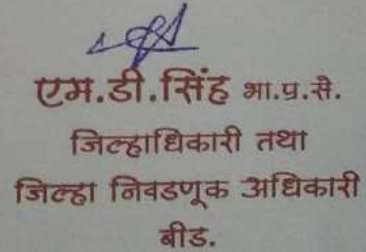 एम.डी.सिंह भा.प्र.से.
जिल्हाधिकारी तथा
जिल्हा निवडणूक अधिकारी
बीड.